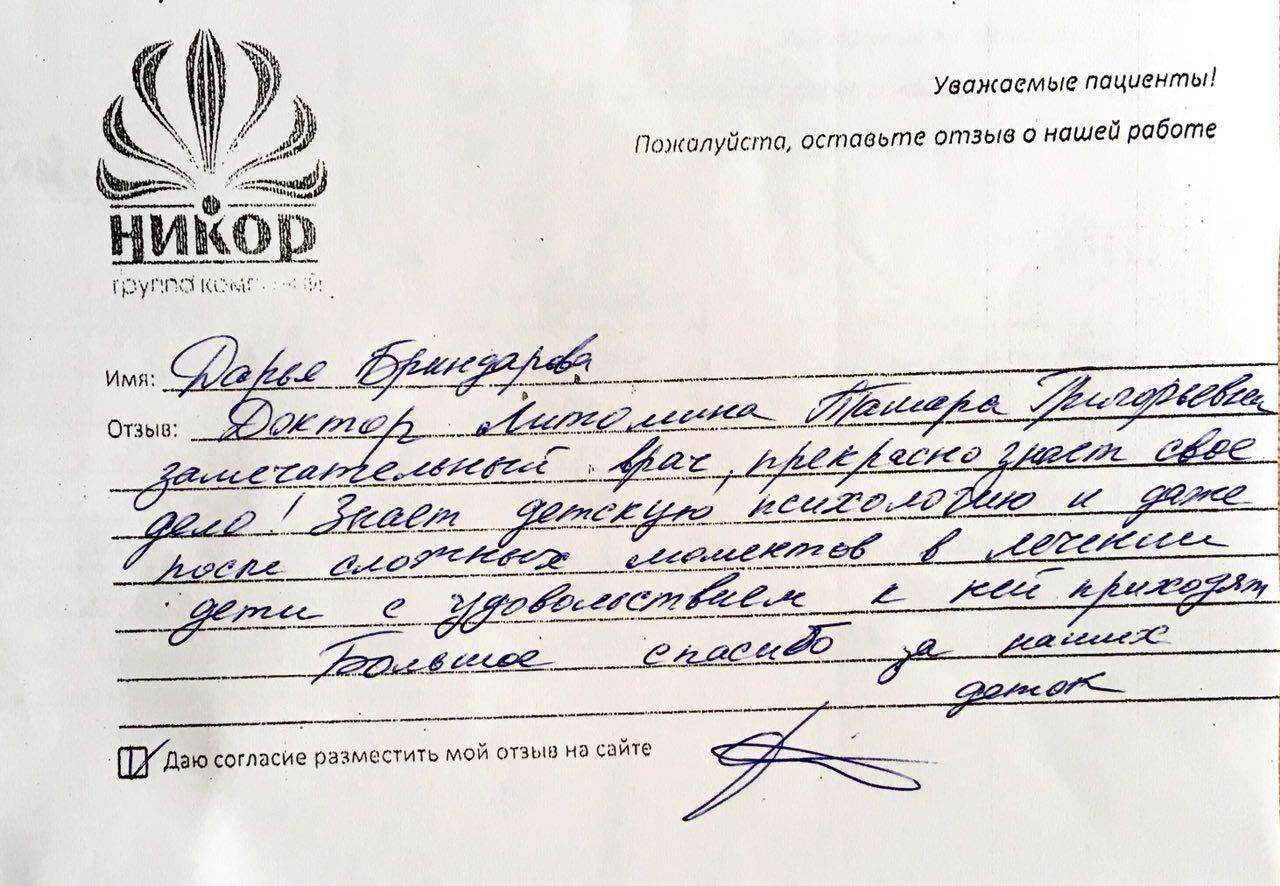 Уважаемые пациенты!
Пожалуйста, оставьте отзыв о нашей работе
НИКОР
группа компаний
Имя: Дарья Бриндарова
Отзыв: Доктор Литомина Тамара Григорьевна
замечательный врач, прекрасно знает свое
дело! Знает детскую психологию и даже
после сложных моментов в лечении
дети с удовольствием к ней приходят
Большое спасибо за наших
деток
Даю согласие разместить мой отзыв на сайте